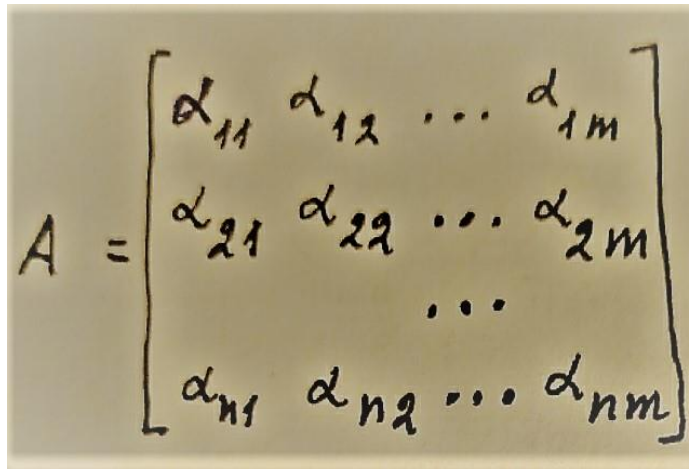 α₁₁ α₁₂ ... α₁ₘ
A = α₂₁ α₂₂ ... α₂ₘ
...
αₙ₁ αₙ₂ ... αₙₘ